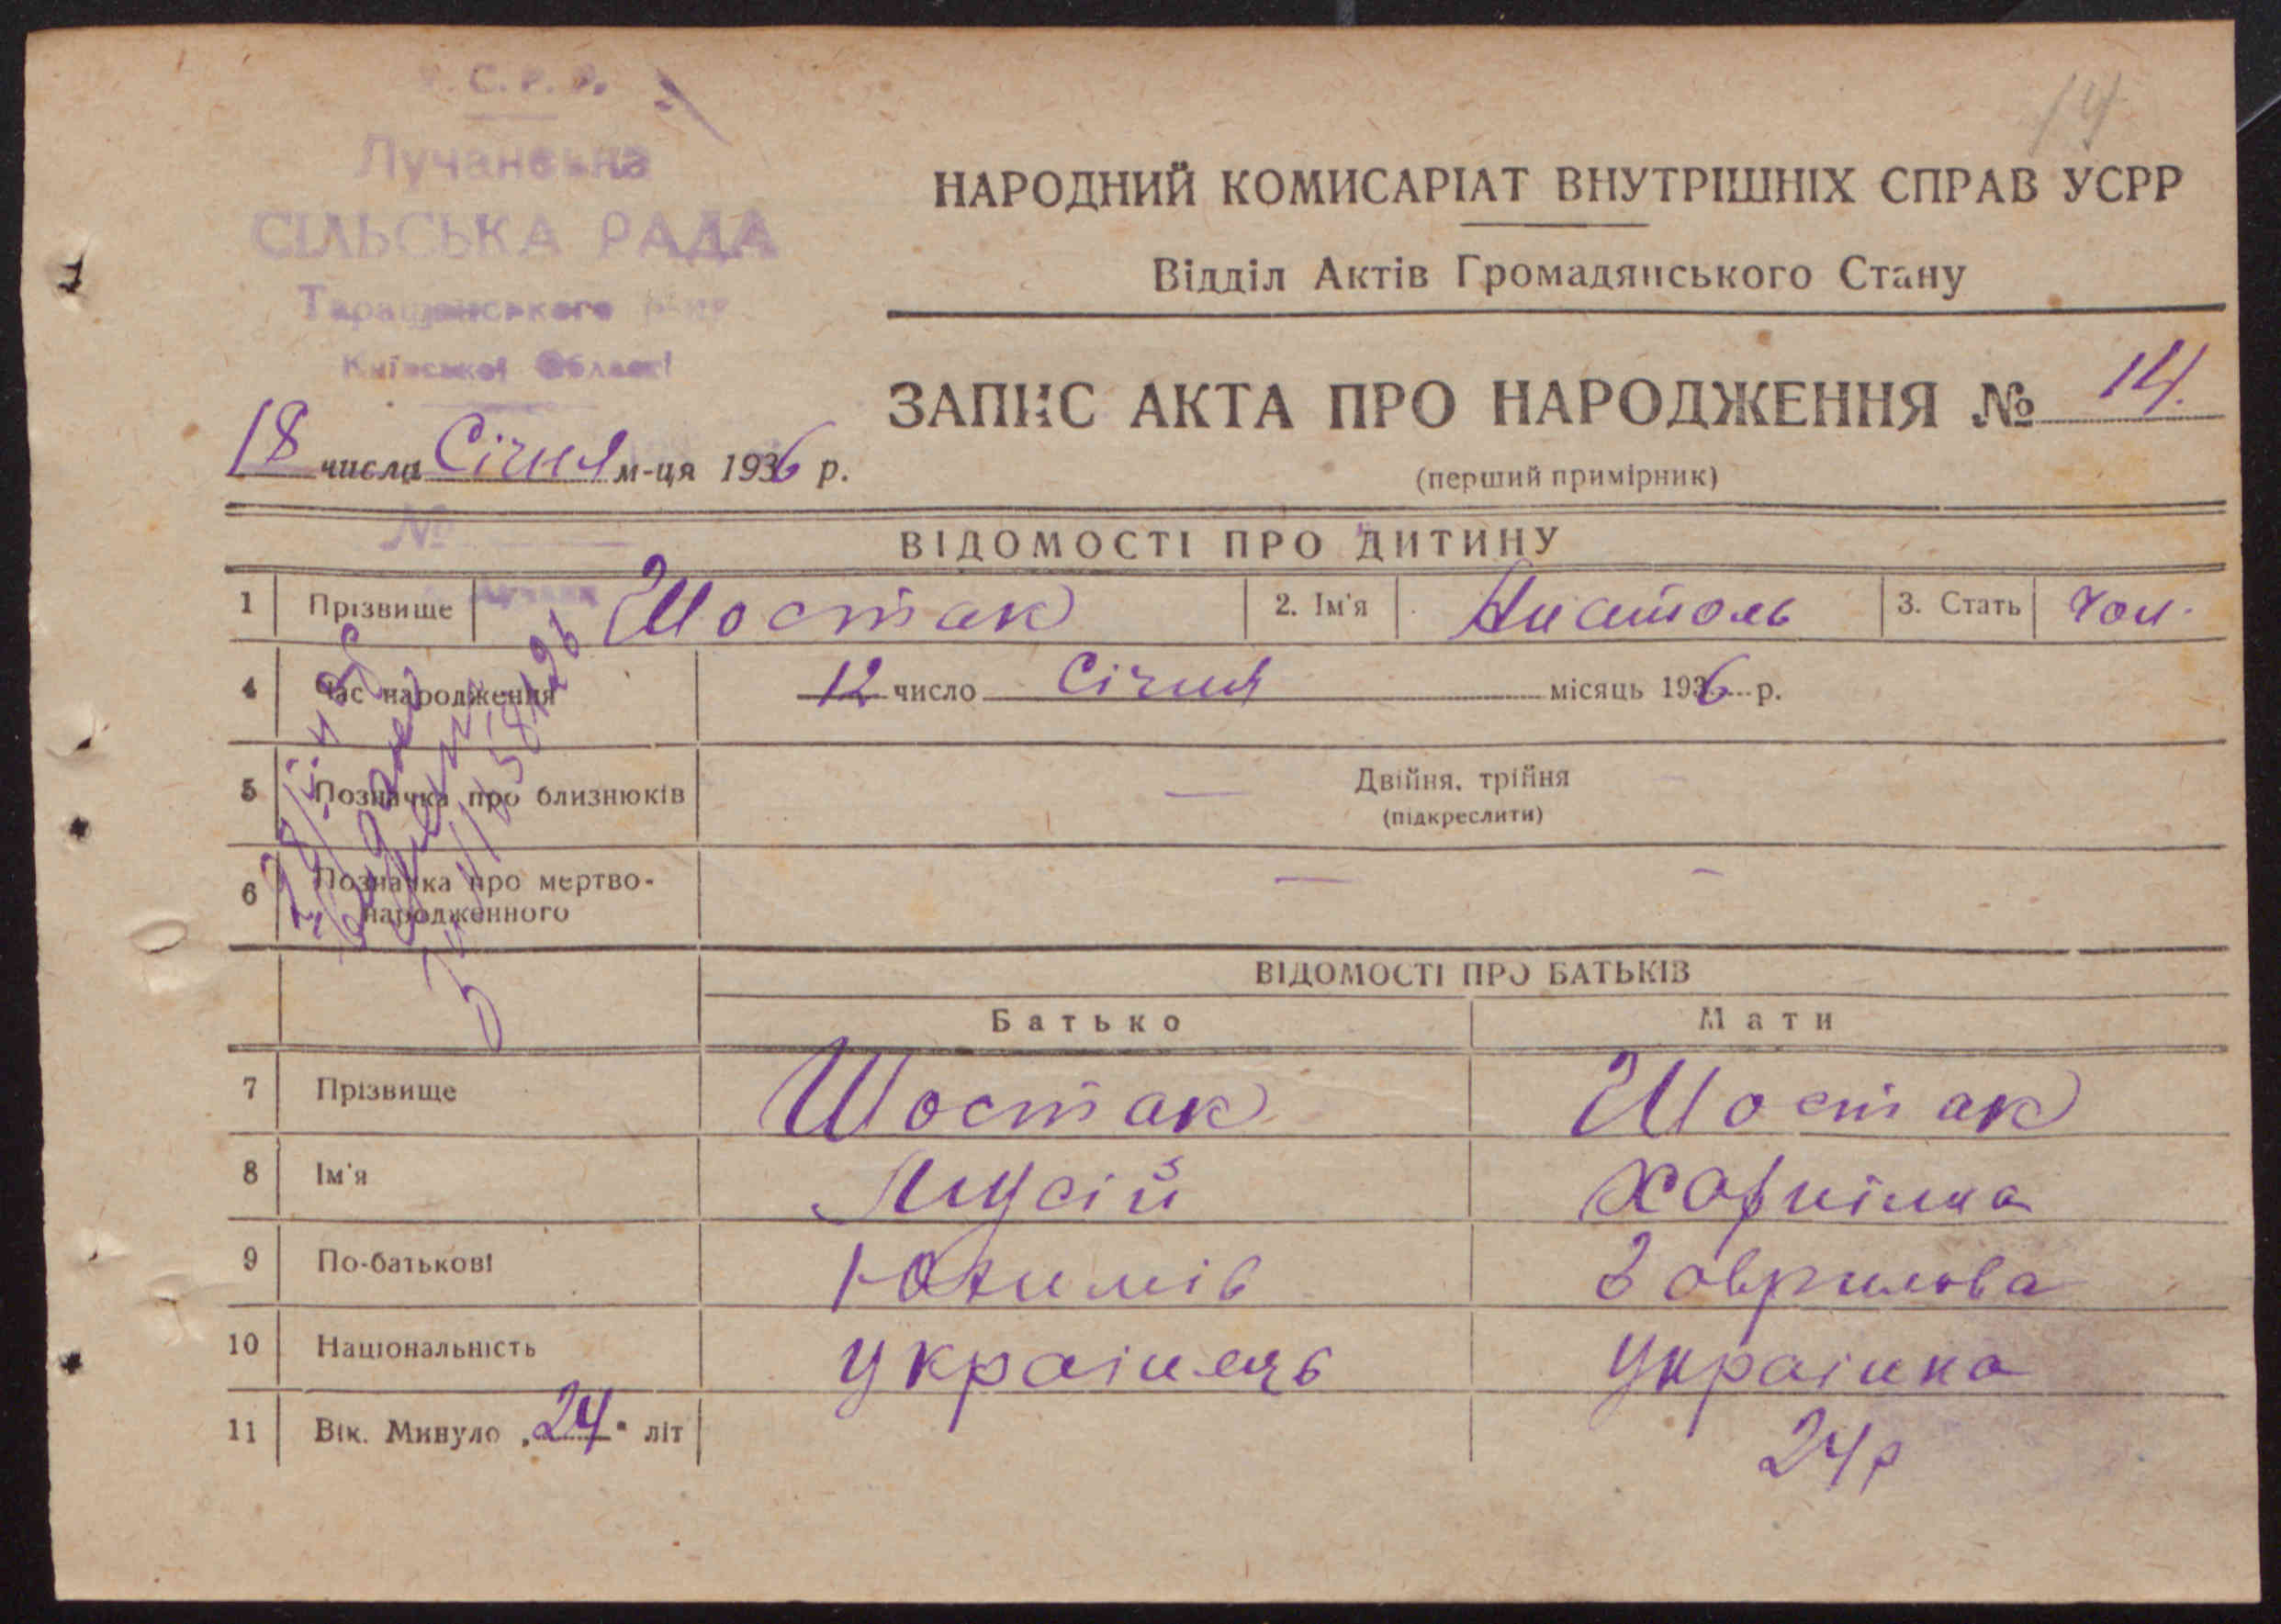 С.Р.Р.
14
Лучанська
СІЛЬСЬКА РАДА
Таращанського
Київської Області
НАРОДНИЙ КОМИСАРІАТ ВНУТРІШНІХ СПРАВ УСРР
Відділ Актів Громадянського Стану
ЗАПИС АКТА ПРО НАРОДЖЕННЯ № 14.
(перший примірник)
18 числа Січня м-ця 1936 р.
№
ВІДОМОСТІ ПРО ДИТИНУ
1 Прізвище Шостак 2. Ім'я Анатоль 3. Стать чол.
4 Час народження 12 число Січня місяць 1936 р.
5 Позначка про близнюків — Двійня, трійня
(підкреслити)
6 Позначка про мертво-
народженного — -
ВІДОМОСТІ ПРО БАТЬКІВ
Батько Мати
7 Прізвище Шостак Шостак
8 Ім'я Мусій
9 По-батькові Юхимів Гаврилова
10 Національність українець українка
11 Вік. Минуло „24" літ 24р